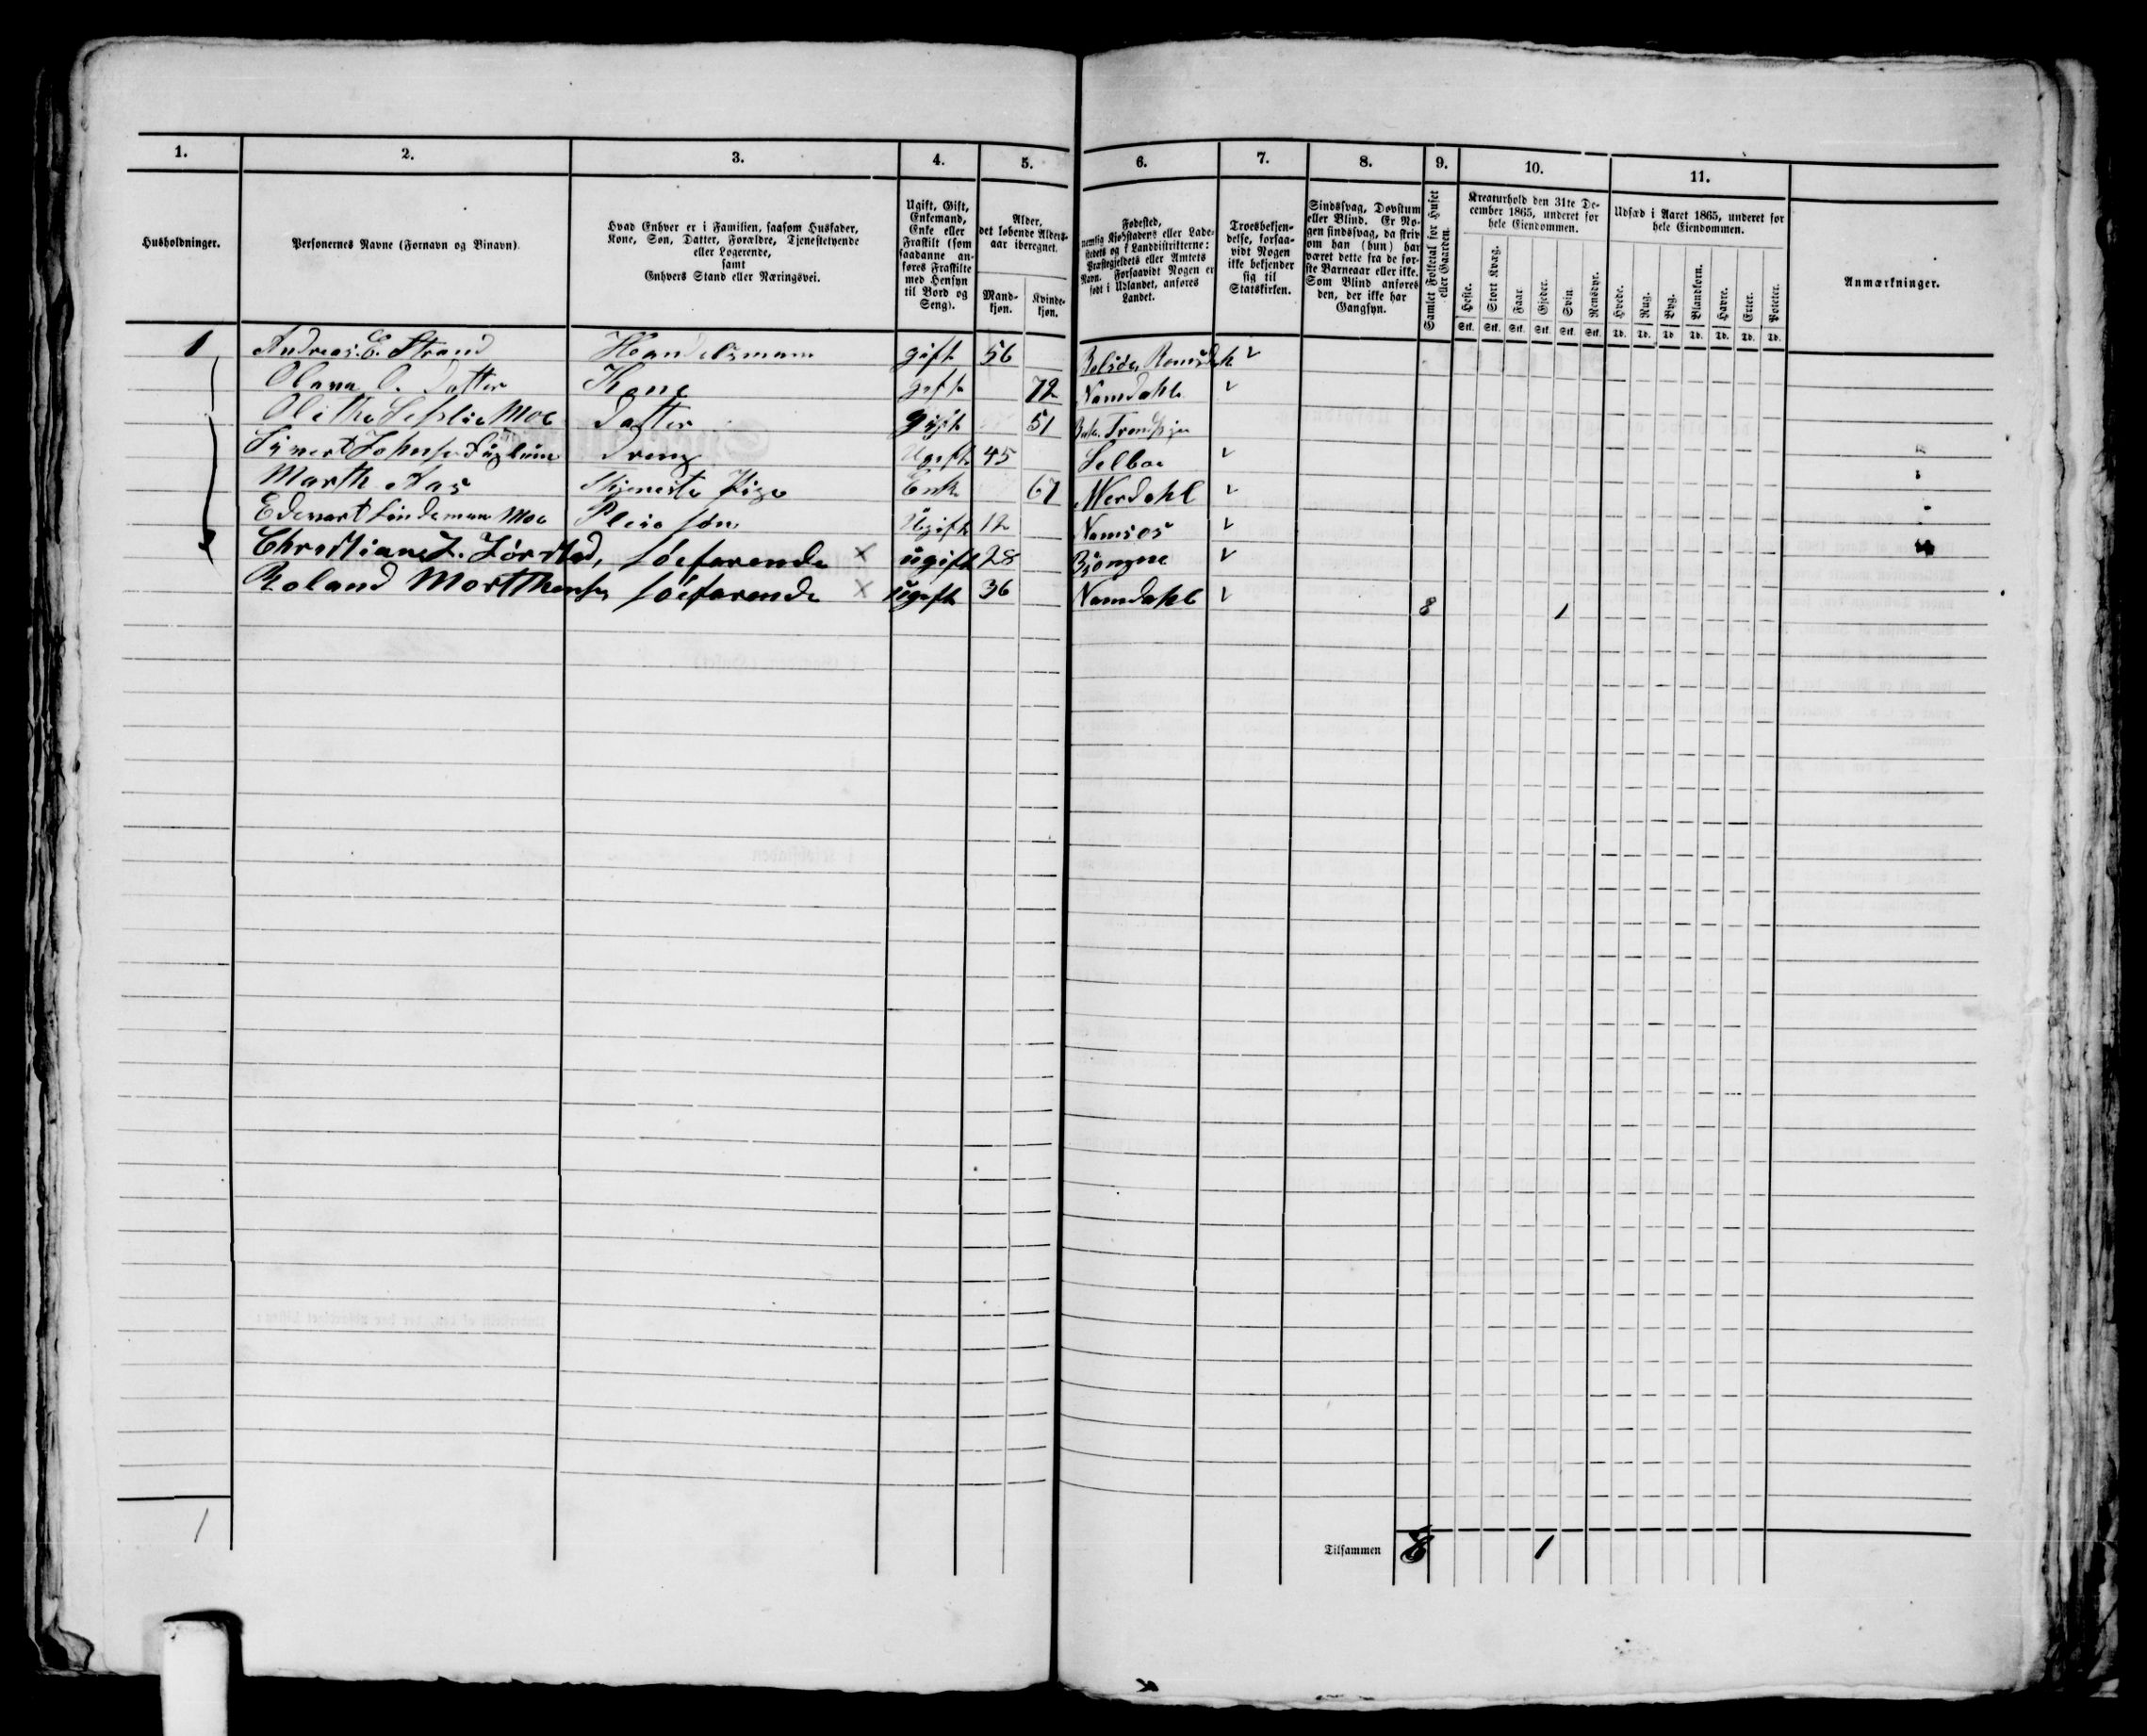 1. 2. 3. 4. 5. 6. 7. 8. 9. 10. 11.
Husholdninger.
Personernes Navne (Fornavn og Binavn).
Hvad Enhver er i Familien, saasom Husfader,
Kone, Søn, Datter, Forældre, Tjenestetyende
eller Logerende,
samt
Enhvers Stand eller Næringsvei.
Ugift, Gift,
Enkemand,
Enke eller
Fraskilt (som
saadanne an-
føres Fraskilte
med Hensyn
til Bord og
Seng).
Alder,
det løbende Alders-
aar iberegnet.
Mand-
kjøn.
Kvinde-
kjøn.
Fødested,
nemlig Kjøbstadens eller Lade-
stedets og i Landdistrikterne:
Præstegjeldets eller Amtets
Navn. Forsaavidt Nogen er
født i Udlandet, anføres
Landet.
Troesbekjen-
delse, forsaa-
vidt Nogen
ikke bekjender
sig til
Statskirken.
Sindssvag, Døvstum
eller Blind. Er No-
gen sindssvag, da skriv
om han (hun) har
været dette fra de før-
ste Barneaar eller ikke.
Som Blind anføres
den, der ikke har
Gangsyn.
Samlet Folketal for Huset
eller Gaarden.
Kreaturhold den 31te De-
cember 1865, underet for
hele Eiendommen.
Heste. Stort Kvæg. Faar. Gjeder. Svin. Rensdyr.
Stk. Stk. Stk. Stk. Stk. Stk.
Udsæd i Aaret 1865, underet for
hele Eiendommen.
Hvede. Rug. Byg. Blandkorn. Havre. Erter. Poteter.
Td. Td. Td Td. Td. Td. Td.
Anmærkninger.
1 Andreas. E. Strand Handelsmann gift 56 Romsdahl
Olava O. Datter Kone gift 72 Namdahl
Moe Datter gift 51 Trondhjem
Sivert Johnsen Dreng Ugift 45 Selboe
Marth Aas Tjeneste Pige Enke 67 Werdahl
Edevart Lindeman Moe Pleie søn Ugift 12 Namsos
Christian L. Jørstad, søefarende × ugift 28
Roland Mortthensen søefarende × ugift 36 Namdahl 8 1
1
Tilsammen 8 1